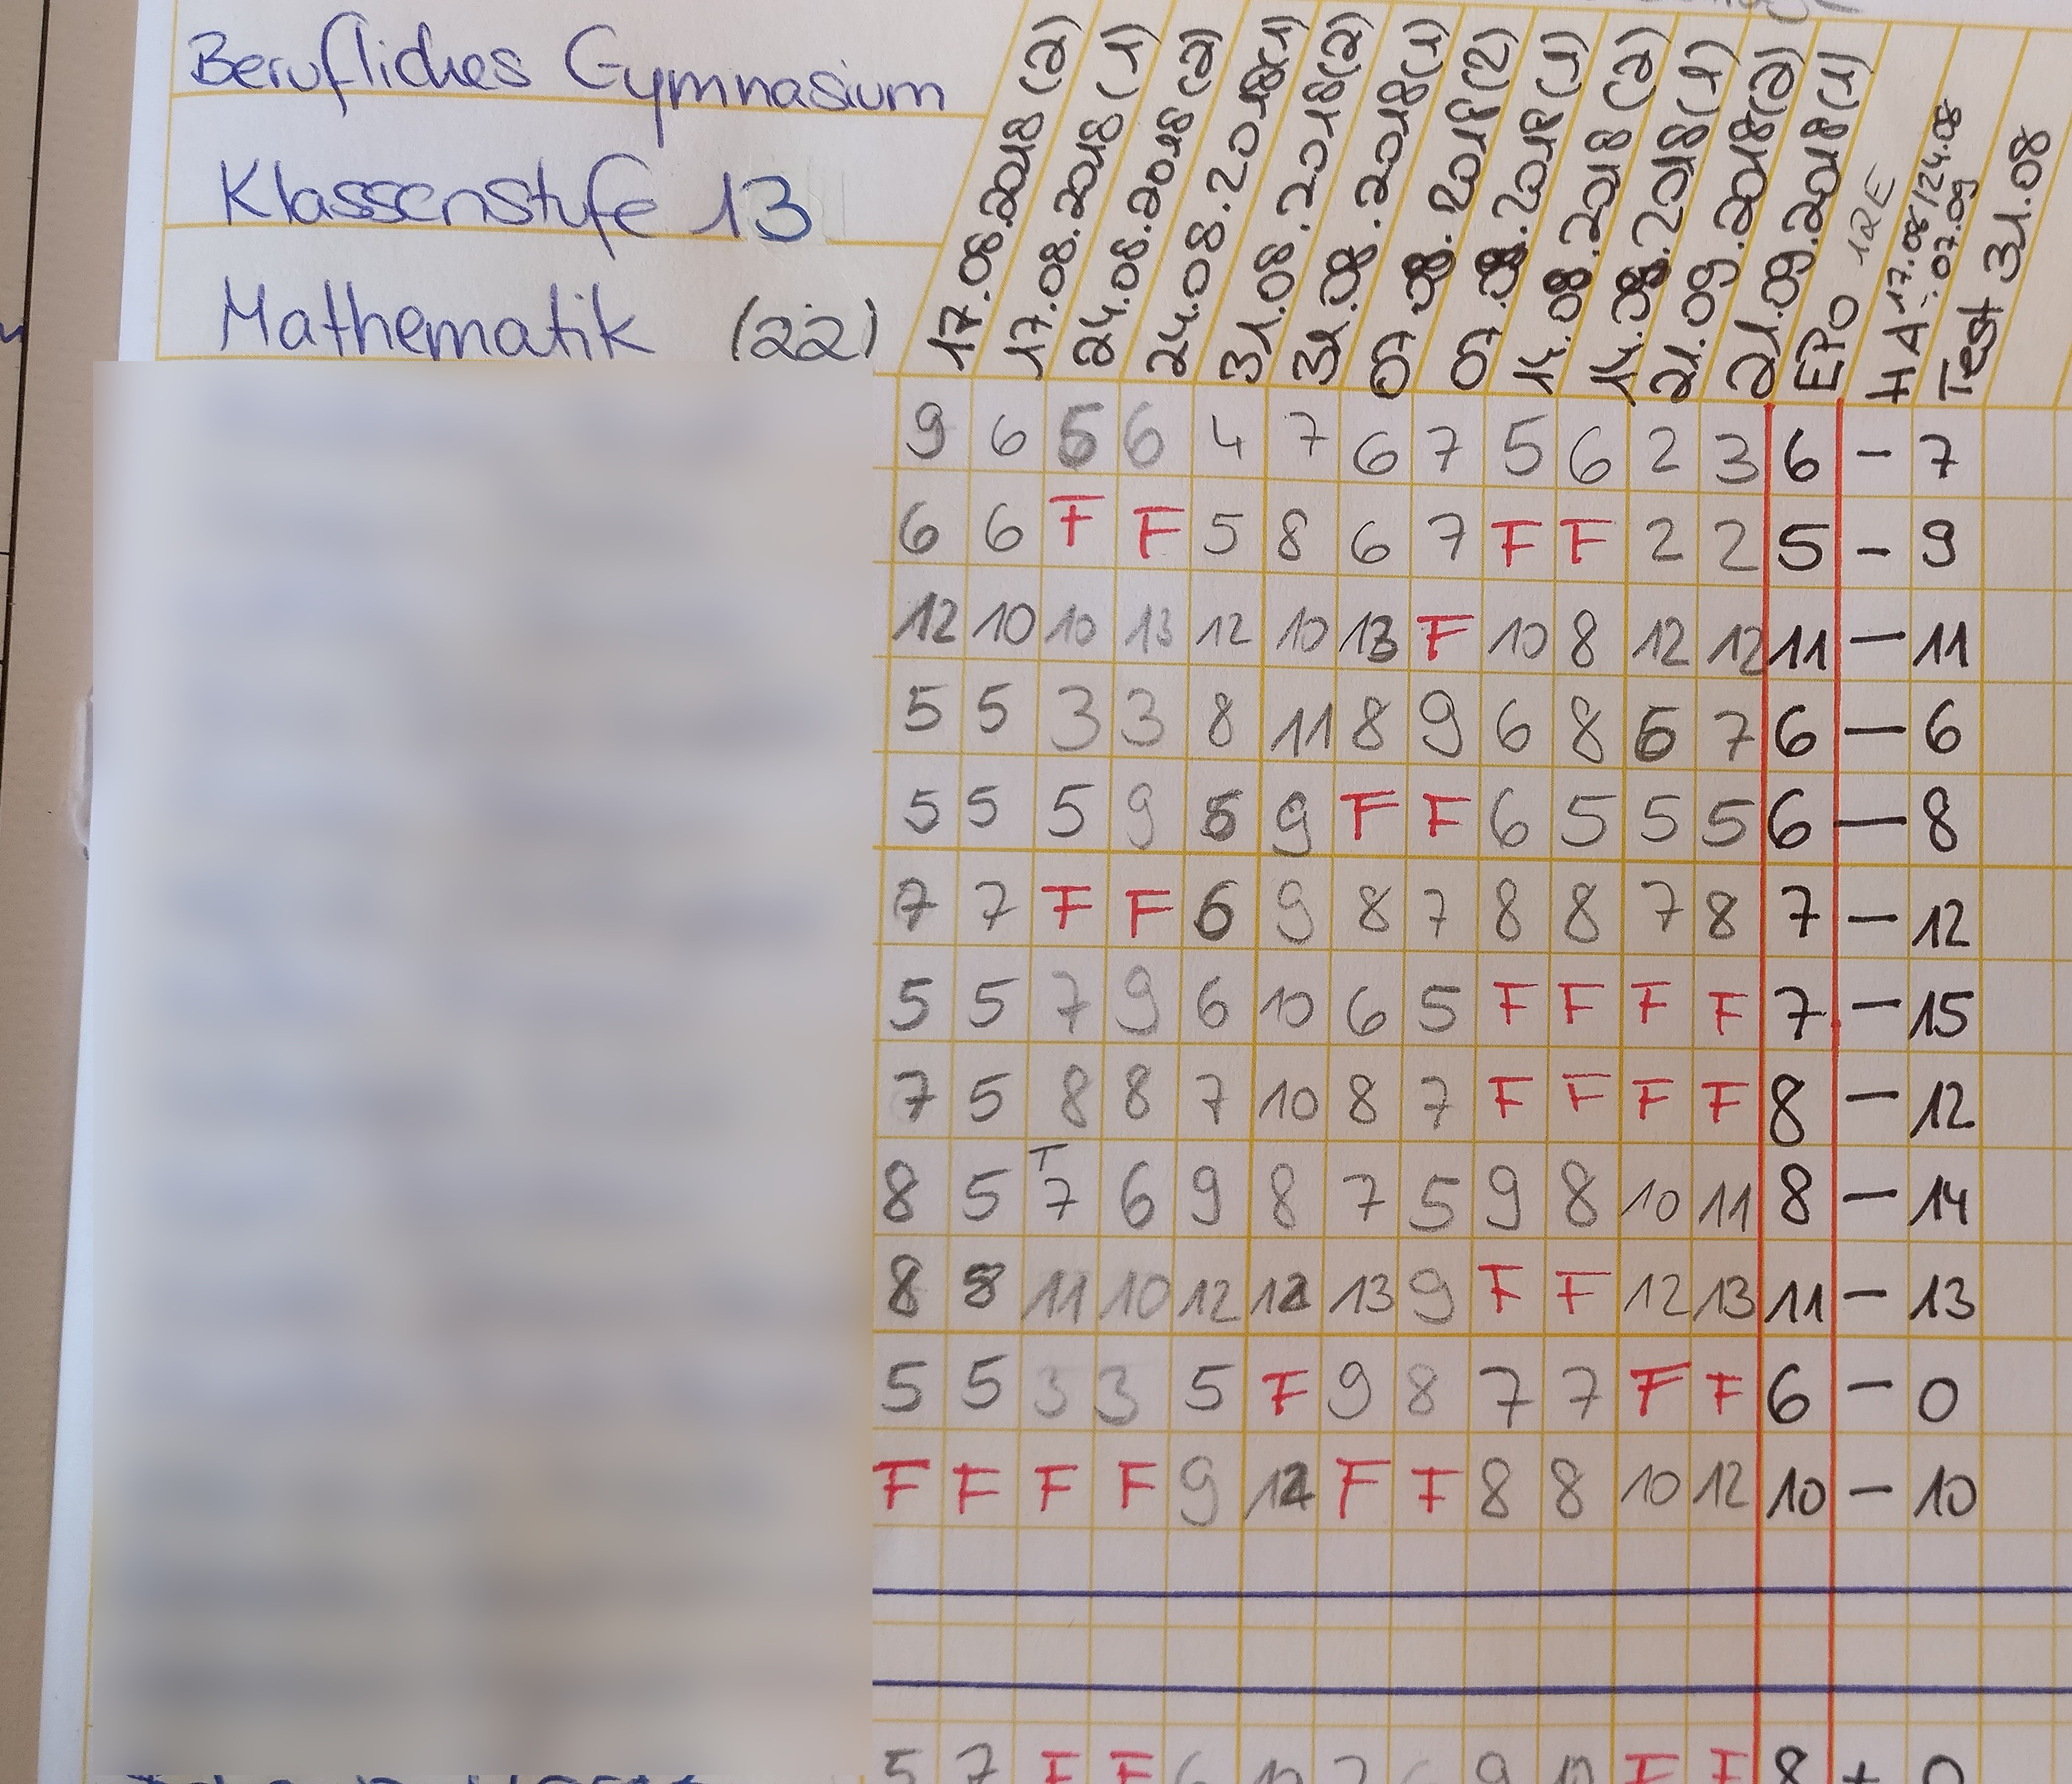 Berufliches Gymnasium
Klassenstufe 13
Mathematik (22)
17.08.2018 (2)
17.08.2018 (1)
24.08.2018 (2)
24.08.2018 (1)
31.08.2018 (2)
31.08.2018 (1)
07.09.2018 (2)
07.09.2018 (1)
14.09.2018 (2)
14.09.2018 (1)
21.09.2018 (2)
21.09.2018 (1)
EPO 1RE
HA: 17.08/24.08
07.09
Test 31.08
9 6 5 6 4 7 6 7 5 6 2 3 6 – 7
6 6 F F 5 8 6 7 F F 2 2 5 – 9
12 10 10 13 12 10 13 F 10 8 12 12 11 – 11
5 5 3 3 8 11 8 9 6 8 6 7 6 – 6
5 5 5 9 9 F F 6 5 5 5 6 – 8
7 7 F F 6 9 8 7 8 8 7 8 7 – 12
5 5 7 9 6 10 6 5 F F F F 7 – 15
7 5 8 8 7 10 8 7 F F F F 8 – 12
8 5 T 7 6 9 8 7 5 9 8 10 11 8 – 14
8 8 11 10 12 12 13 9 F F 12 13 11 – 13
5 5 3 3 5 F 9 8 7 7 F F 6 – 0
F F F F 9 12 F F 8 8 10 12 10 – 10
5 7 F F F F 8 +